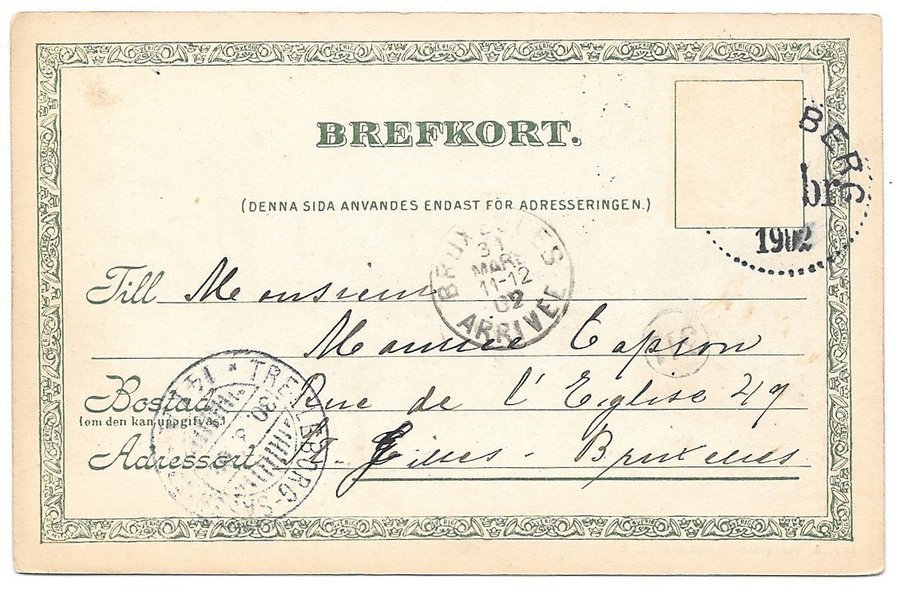 BREFKORT.
(DENNA SIDA ANVANDES ENDAST FÖR ADRESSERINGEN.)
BERG
br
1902
BRUXELLES
31
MARS
11-12
02
ARRIVÉE
Till Monsieur
Maurice Capron
Bostad Rue de l'Eglise 49
(om den kan uppgifvas)
Adressort St Gilles - Bruxelles
TRELLEBORG-SA
30 3